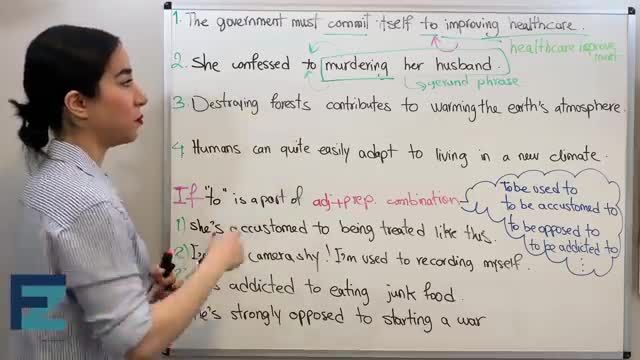 1. The government must commit itself to improving healthcare.
healthcare improvement
2. She confessed to murdering her husband.
gerund phrase
3. Destroying forests contributes to warming the earth's atmosphere.
4. Humans can quite easily adapt to living in a new climate.
If "to" is a part of adj+prep. combination
To be used to
to be accustomed to
to be opposed to
to be addicted to
1) She's accustomed to being treated like this.
2) camera shy! I'm used to recording myself.
addicted to eating junk food.
strongly opposed to starting a war
EZ